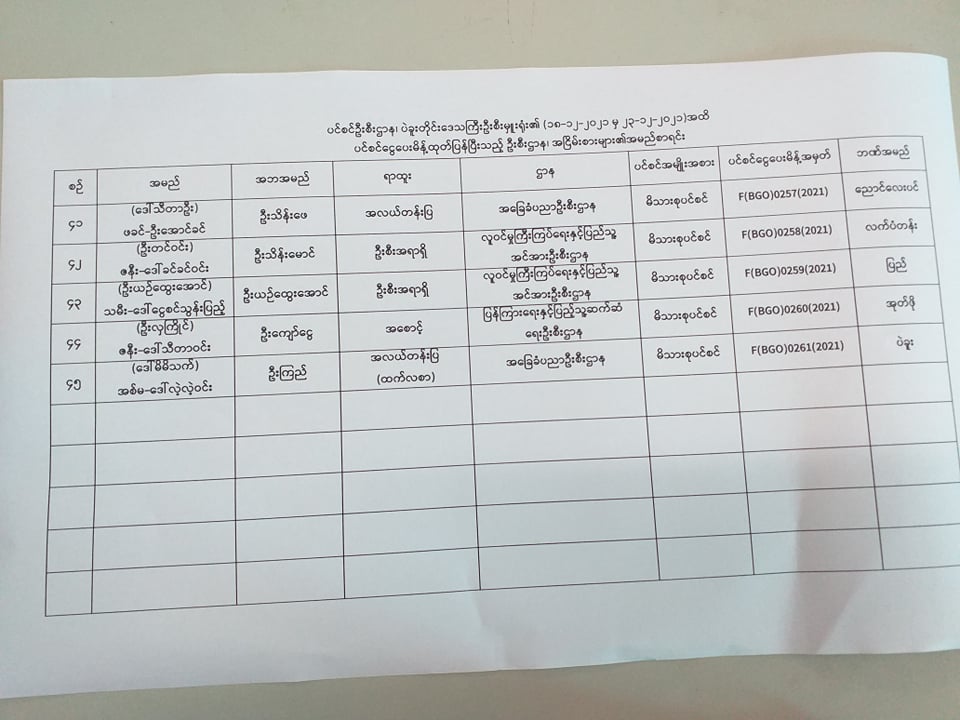 ပင်စင်ဦးစီးဌာန၊ ပဲခူးတိုင်းဒေသကြီးဦးစီးမှူးရုံး၏ (၁၈-၁၂-၂၀၂၁ မှ ၂၃-၁၂-၂၀၂၁)အထိ
ပင်စင်ငွေပေးမိန့်ထုတ်ပြန်ပြီးသည့် ဦးစီးဌာန၊ အငြိမ်းစားများ၏အမည်စာရင်း
စဉ် အမည် အဘအမည် ရာထူး ဌာန ပင်စင်အမျိုးအစား ပင်စင်ငွေပေးမိန့်အမှတ် ဘဏ်အမည်
၄၁ (ဒေါ်သီတာဦး) ဖခင်-ဦးအောင်ခင် ဦးသိန်းဖေ အလယ်တန်းပြ အခြေခံပညာဦးစီးဌာန မိသားစုပင်စင် F(BGO)0257(2021) ညောင်လေးပင်
၄၂ (ဦးတင်ဝင်း) ဇနီး-ဒေါ်ခင်ခင်ဝင်း ဦးသိန်းမောင် ဦးစီးအရာရှိ လူဝင်မှုကြီးကြပ်ရေးနှင့်ပြည်သူ့ အင်အားဦးစီးဌာန မိသားစုပင်စင် F(BGO)0258(2021) လက်ပံတန်း
၄၃ (ဦးယဉ်ထွေးအောင်) သမီး-ဒေါ်ငွေစင်သွန်းပြည့် ဦးယဉ်ထွေးအောင် ဦးစီးအရာရှိ လူဝင်မှုကြီးကြပ်ရေးနှင့်ပြည်သူ့ အင်အားဦးစီးဌာန မိသားစုပင်စင် F(BGO)0259(2021) ပြည်
၄၄ (ဦးလှကြိုင်) ဇနီး-ဒေါ်သီတာဝင်း ဦးကျော်ငွေ အစောင့် ပြန်ကြားရေးနှင့်ပြည်သူ့ဆက်ဆံ ရေးဦးစီးဌာန မိသားစုပင်စင် F(BGO)0260(2021) အုတ်ဖို
၄၅ (ဒေါ်မိမိသက်) အစ်မ-ဒေါ်လဲ့လဲ့ဝင်း ဦးကြည် အလယ်တန်းပြ (ထက်လစာ) အခြေခံပညာဦးစီးဌာန မိသားစုပင်စင် F(BGO)0261(2021) ပဲခူး